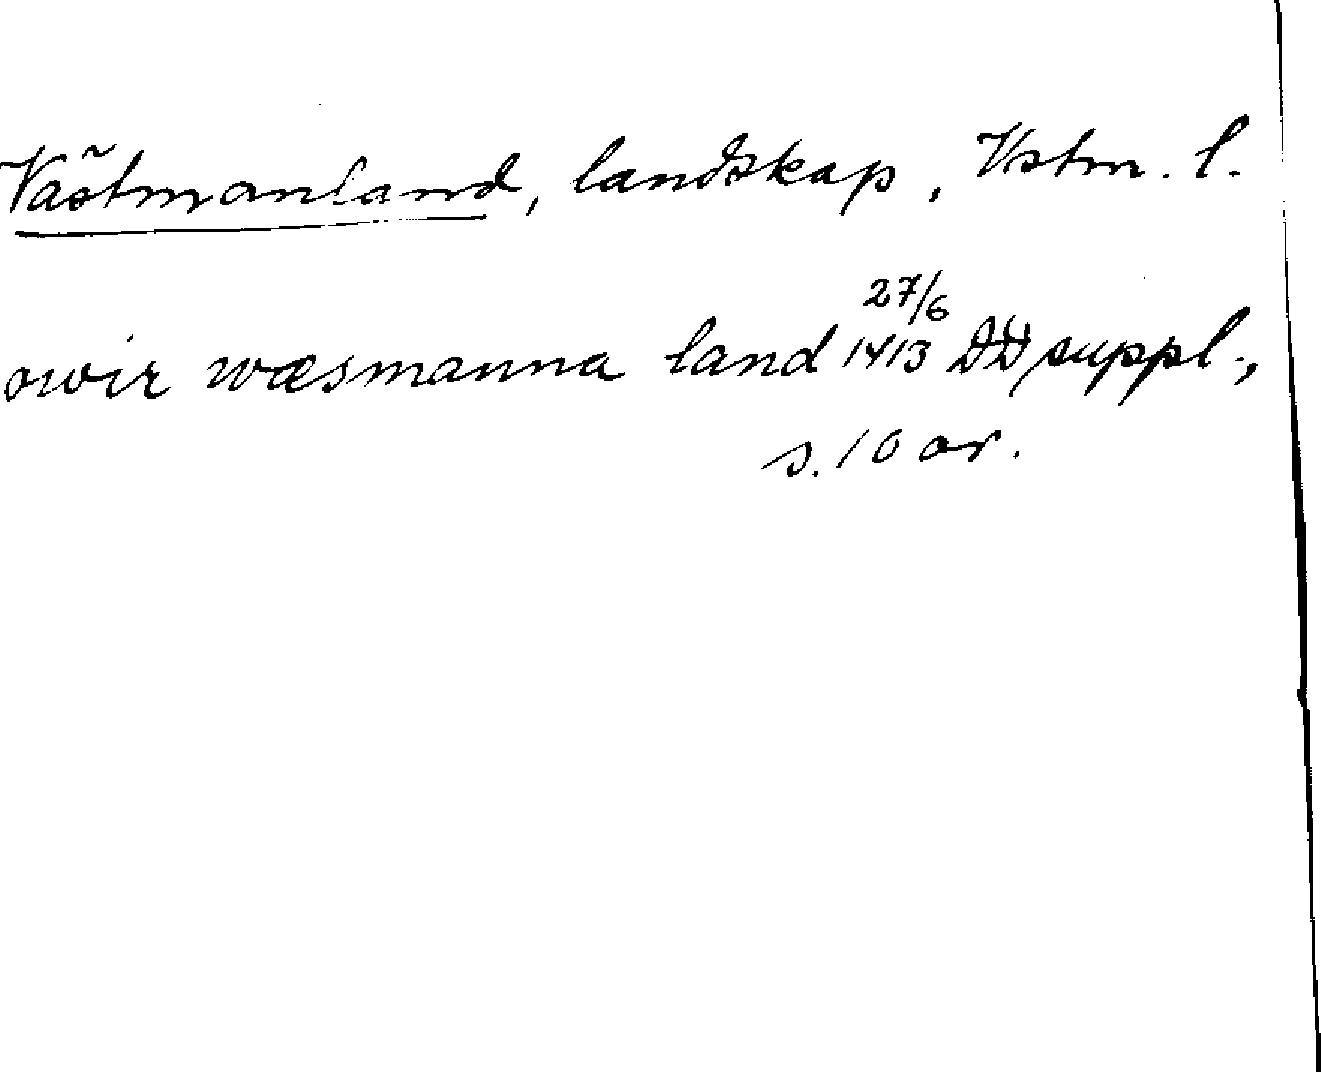 Västmanland, landskap, Vstm. l.
owir wæsmanna land 27/6 1413 DD suppl.,
s. 10 or.